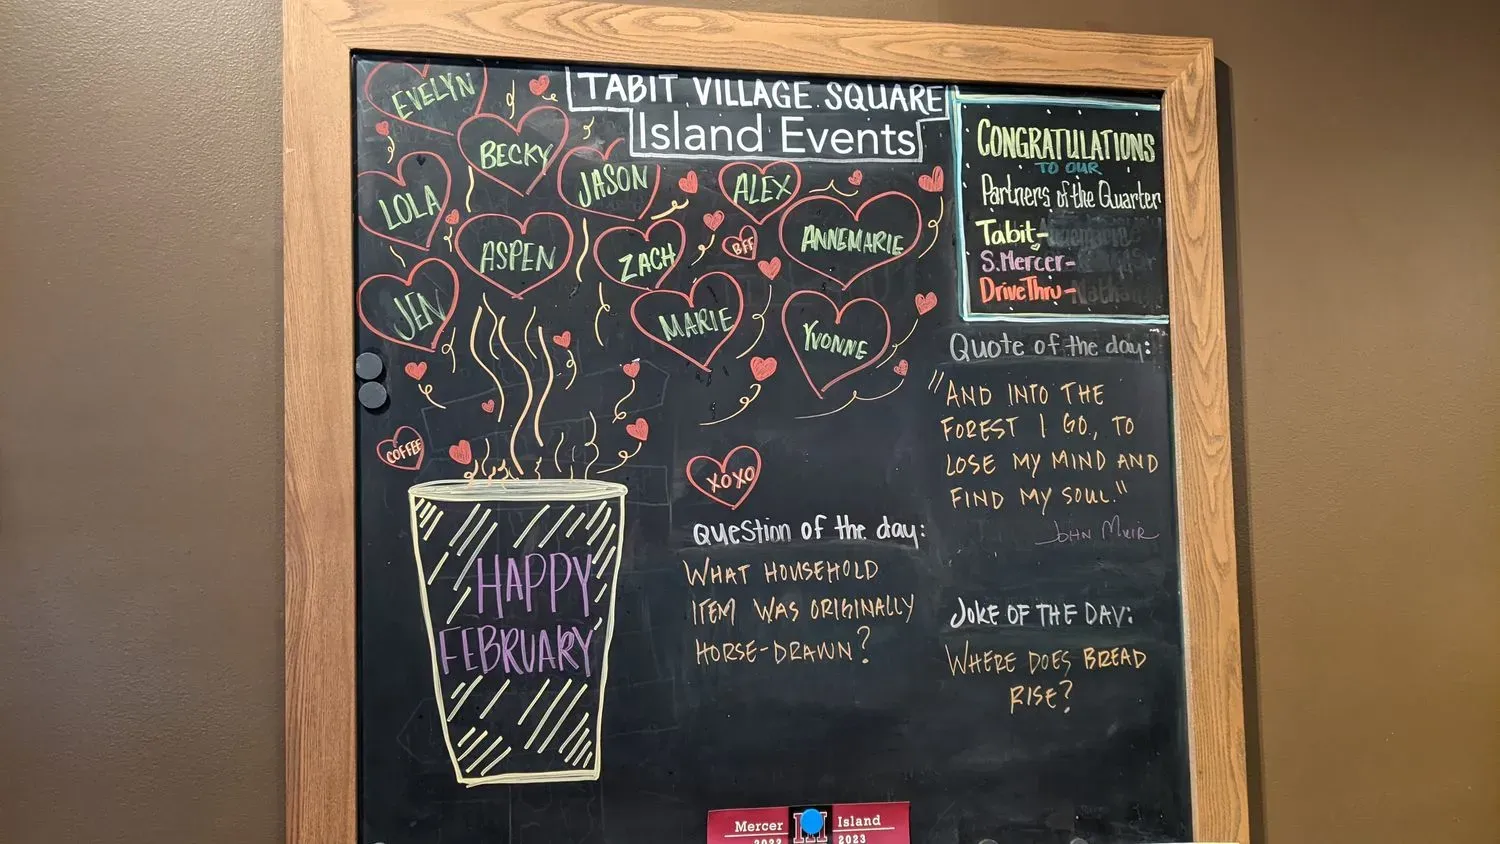 TABIT VILLAGE SQUARE
Island Events
EVELYN
BECKY
JASON
ALEX
LOLA
ASPEN
ZACH
BFF
ANNEMARIE
JEN
MARIE
YVONNE
COFFEE
XOXO
HAPPY
FEBRUARY
CONGRATULATIONS
TO OUR
Partners of the Quarter
Tabit-
S.Mercer-
DriveThru-
Quote of the day:
"AND INTO THE
FOREST I GO, TO
LOSE MY MIND AND
FIND MY SOUL."
John Muir
Question of the day:
WHAT HOUSEHOLD
ITEM WAS ORIGINALLY
HORSE-DRAWN?
JOKE OF THE DAY:
WHERE DOES BREAD
RISE?
Mercer Island
2023 2023